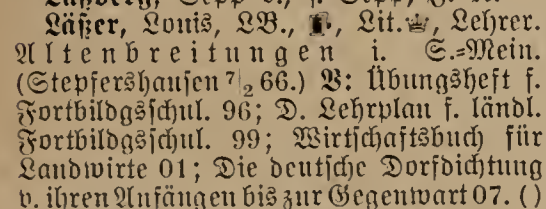 Läßer, Louis, LB., Lit. Lehrer.
Altenbreitungen i. S.=Mein.
(Stepfershausen 7/2 66.) V: Übungsheft f.
Fortbildgsschul. 96; D. Lehrplan f. ländl.
Fortbildgsschul. 99; Wirtschaftsbuch für
Landwirte 01; Die deutsche Dorfdichtung
v. ihren Anfängen bis zur Gegenwart 07. ()